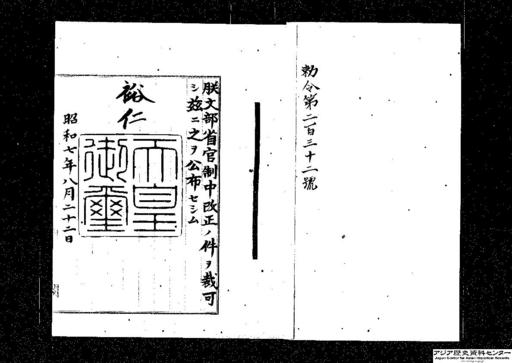 勅令第二百三十二號
朕文部省官制中改正ノ件ヲ裁可
シ茲ニ之ヲ公布セシム
裕仁
天皇御璽
昭和七年八月二十二日
アジア歴史資料センター
Japan Center for Asian Historical Records